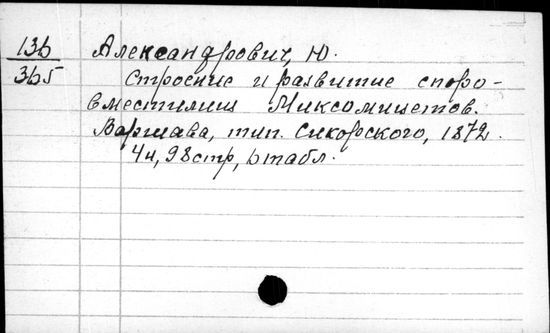 136
365
Александрович, Ю.
Строение и развитие споро-
вместилищ Миксомицетов.
Варшава, тип. Сикорского, 1872.
4н, 98 стр, 6 табл.